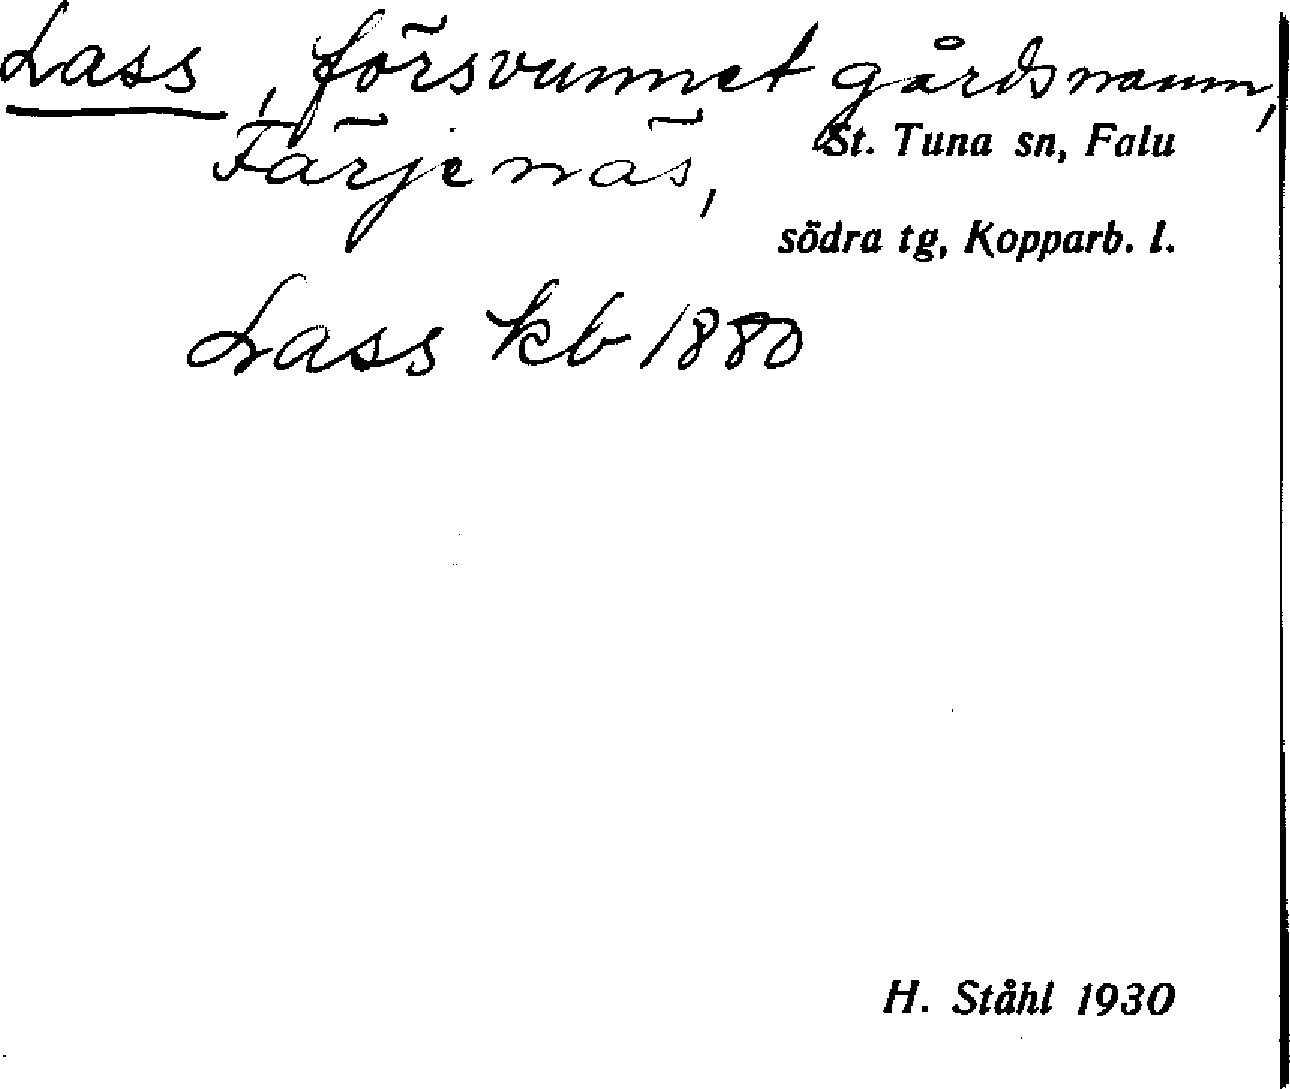 Lass, försvunnet gårdsnamn,
Färjenäs, St. Tuna sn, Falu
södra tg, Kopparb. l.
Lass kb 1880
H. Ståhl 1930